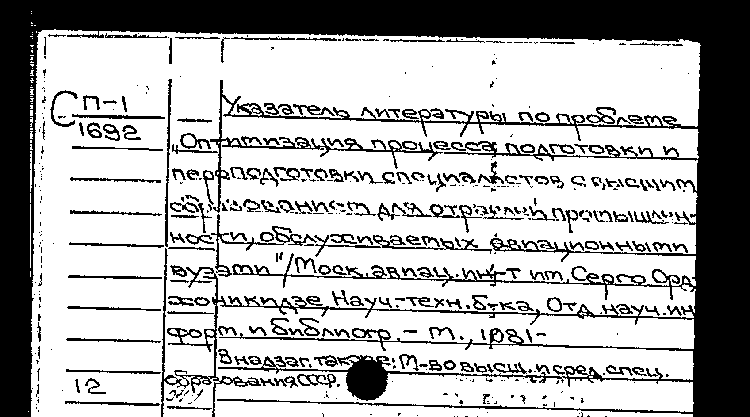 СП-1
1692
Указатель литературы по проблеме
„Оптимизация процесса подготовки и
переподготовки специалистов с высшим
образованием для отраслей промышлен-
ности, обслуживаемых авиационными
вузами"/Моск. авиац. ин-т им. Серго Орд-
жоникидзе, Науч.-техн. б-ка, Отд. науч. ин
форм. и библиогр. - М., 1981-
В надзаг. также: М-во высш. и сред. спец.
образования СССР.
12